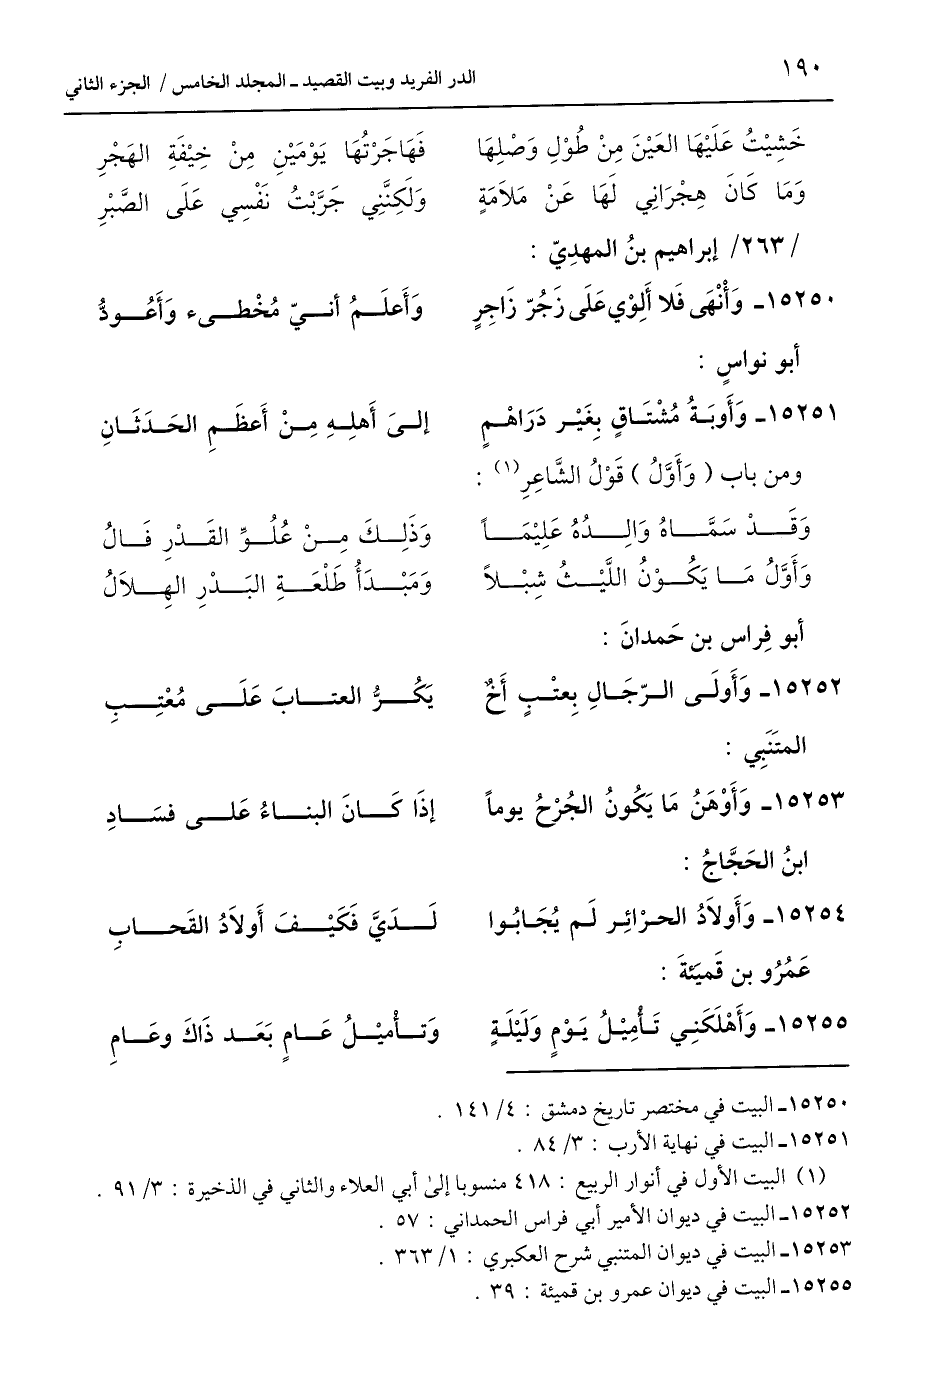 ١٩٠
الدر الفريد وبيت القصيد ـ المجلد الخامس / الجزء الثاني
خَشِيْتُ عَلَيْهَا العَيْنَ مِنْ طُوْلِ وَصْلِهَا فَهَاجَرْتُهَا يَوْمَيْنِ مِنْ خِيْفَةِ الهَجْرِ
وَمَا كَانَ هِجْرَانِي لَهَا عَنْ مَلاَمَةٍ وَلَكِنَّنِي جَرَّبْتُ نَفْسِي عَلَى الصَّبْرِ
/ ٢٦٣/ إبراهيم بنُ المهديّ :
١٥٢٥٠ـ وَأُنْهَى فَلا أَلِوْي عَلَى زَجُرّ زَاجِرٍ وَأَعلَمُ أنيّ مُخْطىء وَأَعُودُّ
أبو نواسٍ :
١٥٢٥١ـ وَأَوبَةُ مُشْتَاقٍ بِغَيْر دَرَاهْمٍ إلىَ أَهلِهِ مِنْ أَعظَمِ الحَدَثَانِ
ومن باب ( وَأَوَّلُ ) قَوْلُ الشَّاعِرِ(١) :
وَقَدْ سَمَّاهُ وَالِدُهُ عَلِيْمَاً وَذَلِكَ مِنْ عُلُوِّ القَدْرِ فَالُ
وَأَوَّلُ مَا يَكُوْنُ اللَّيْثُ شِبْلاً وَمَبْدَأُ طَلْعَةِ البَدْرِ الهِلاَلُ
أبو فِراس بن حَمدانَ :
١٥٢٥٢ـ وَأَولَى الرّجَالِ بِعتْبٍ أَخٌ يَكُرُّ العتابَ عَلَى مُعْتِبِ
المتَنَبِي :
١٥٢٥٣ـ وَأَوْهَنُ مَا يَكُونُ الجُرْحُ يوماً إذَا كَانَ البناءُ عَلى فسَادِ
ابنُ الحَجَّاجُ :
١٥٢٥٤ـ وَأَولاَدُ الحرائِر لَم يُجَابُوا لَدَيَّ فَكَيْفَ أَولاَدُ القَحابِ
عَمُرُو بن قَميَئةَ :
١٥٢٥٥ـ وَأَهْلَكَنِي تَأمِيْلُ يَوْمٍ وَلَيْلَةٍ وَتأْمِيْلُ عَامٍ بَعَد ذَاكَ وعَامِ
١٥٢٥٠ـ البيت في مختصر تاريخ دمشق : ٤/ ١٤١ .
١٥٢٥١ـ البيت في نهاية الأرب : ٣/ ٨٤ .
(١) البيت الأول في أنوار الربيع : ٤١٨ منسوبا إلى أبي العلاء والثاني في الذخيرة : ٣/ ٩١ .
١٥٢٥٢ـ البيت في ديوان الأمير أبي فراس الحمداني : ٥٧ .
١٥٢٥٣ـ البيت في ديوان المتنبي شرح العكبري : ١/ ٣٦٣ .
١٥٢٥٥ـ البيت في ديوان عمرو بن قميئة : ٣٩ .